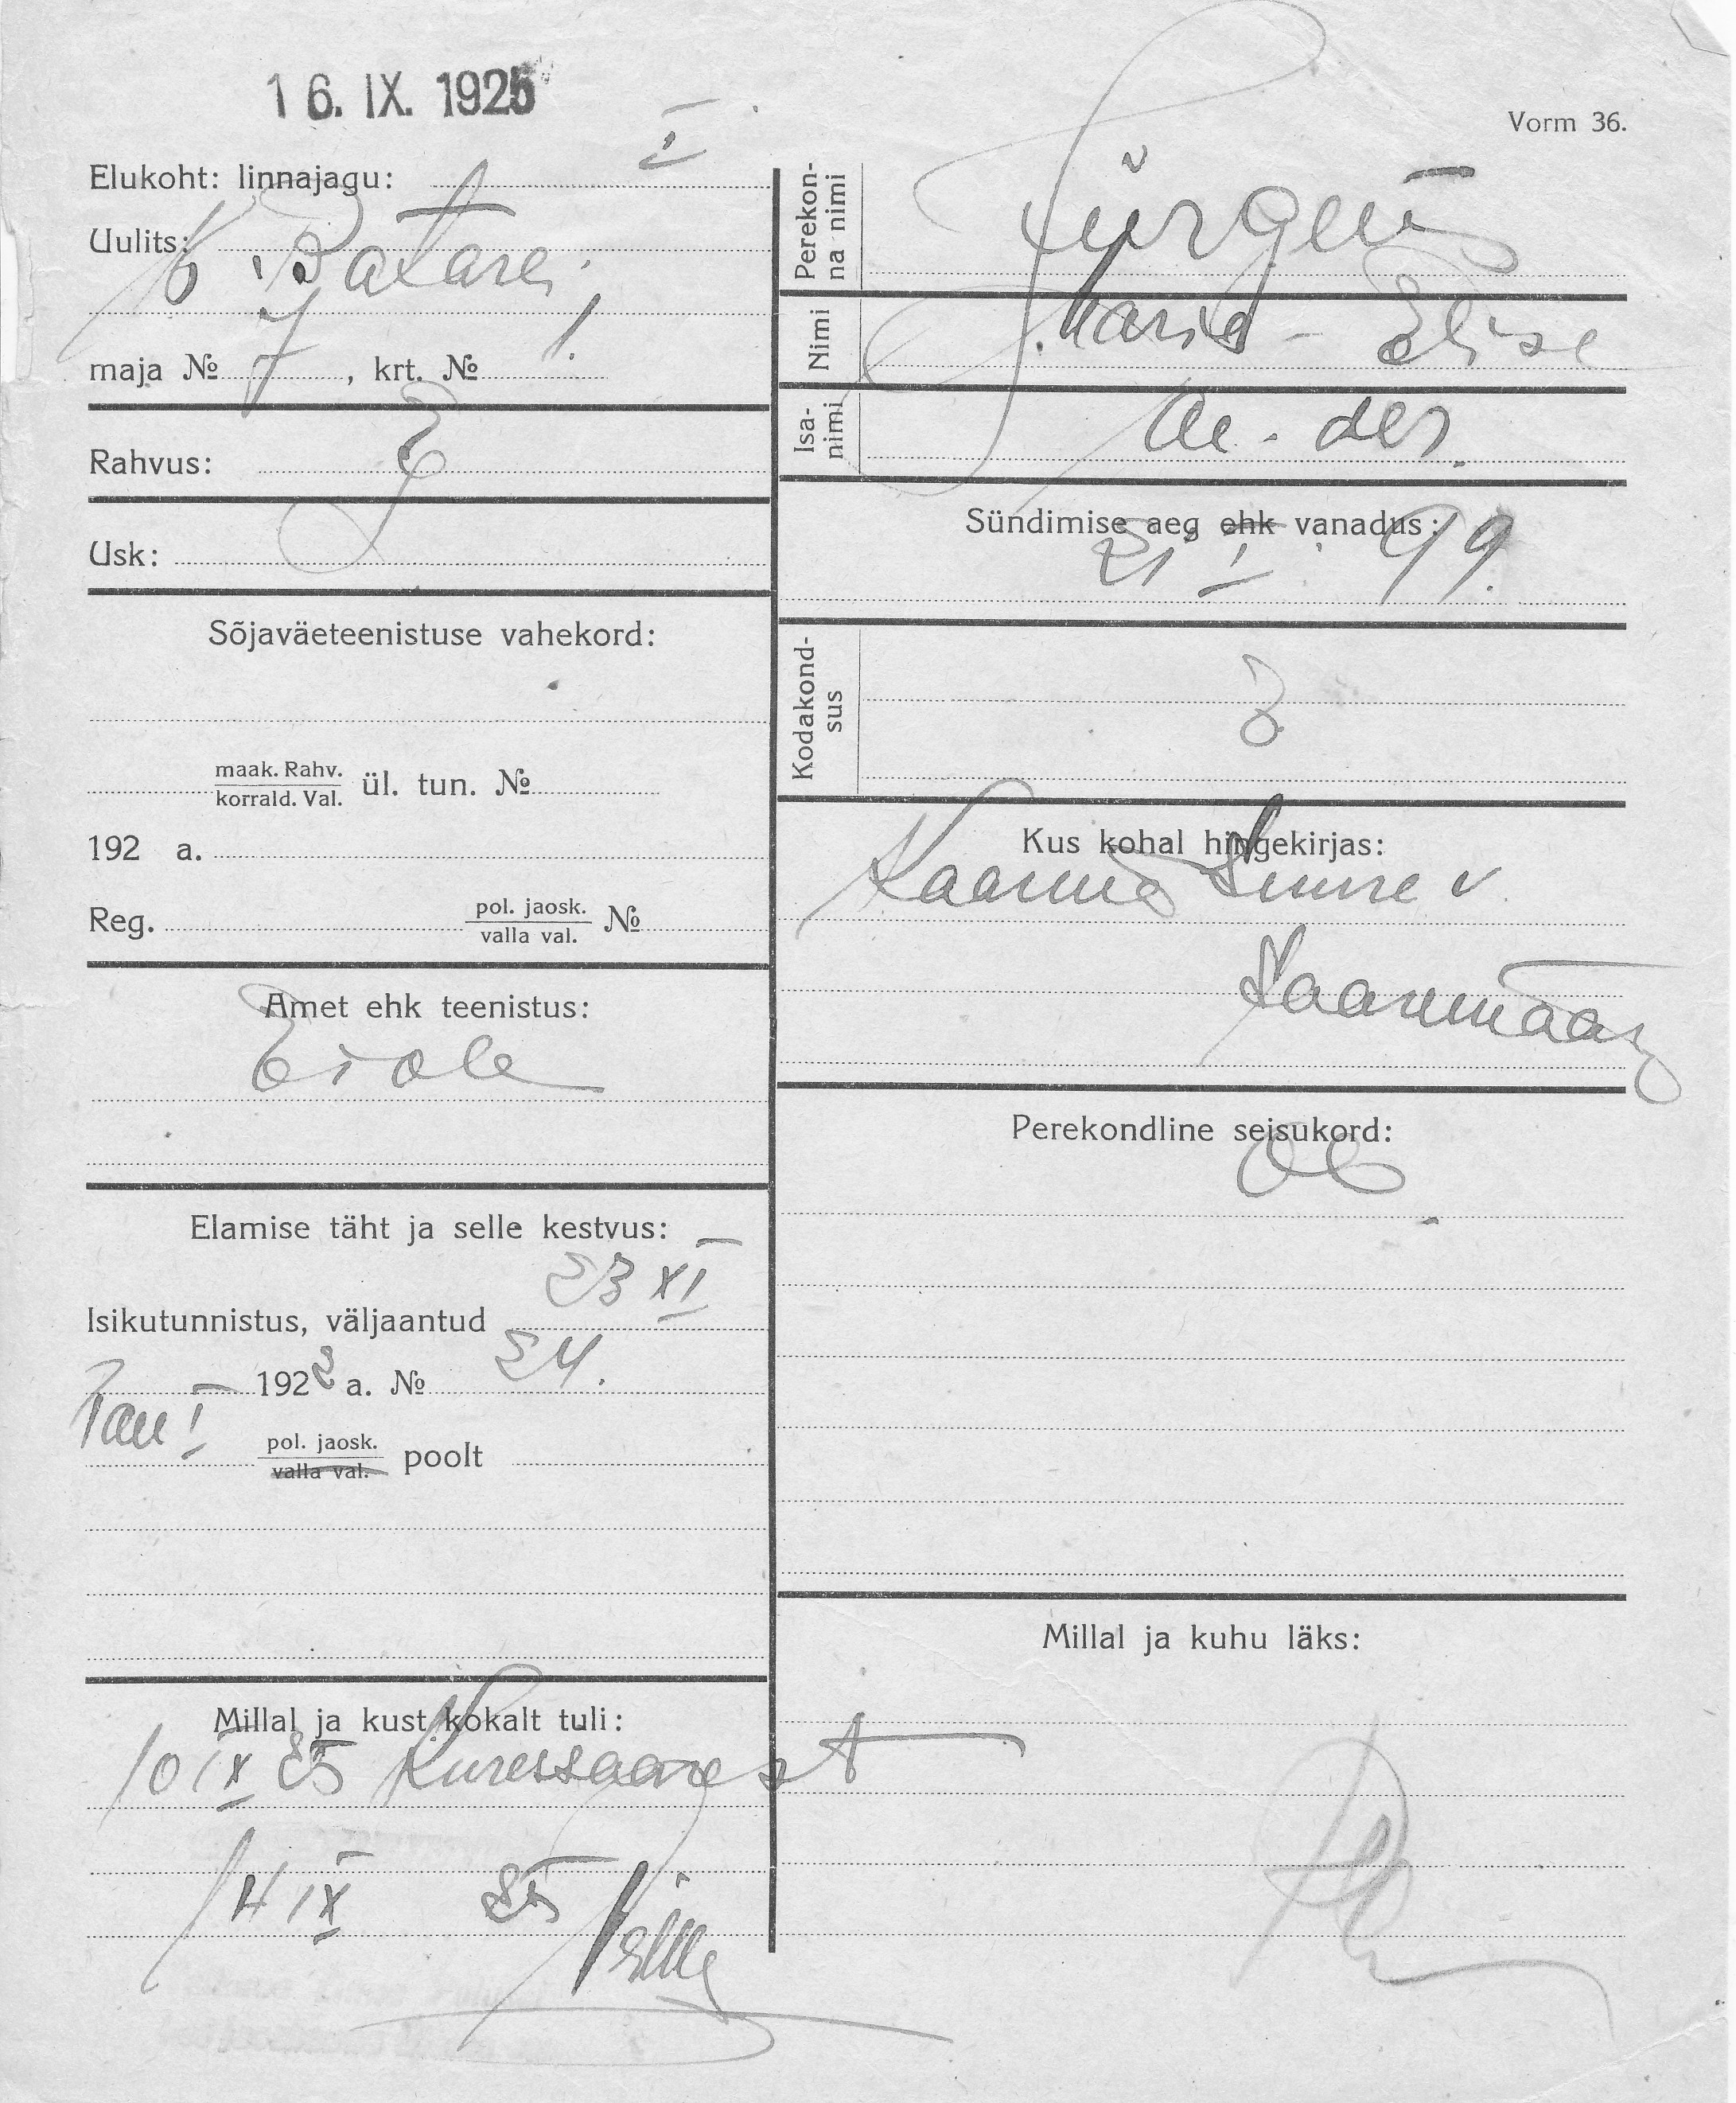 16. IX. 1925
Vorm 36.
Elukoht: linnajagu: I
Uulits: Batarei
maja № 7, krt. № 1.
Rahvus: E
Usk:
Sõjaväeteenistuse vahekord:
maak. Rahv.
korrald. Val. ül. tun. №
192 a.
Reg. pol. jaosk.
valla val. №
Amet ehk teenistus:
Ei ole
Elamise täht ja selle kestvus:
23 XI
Isikutunnistus, väljaantud
1922 a. № 24.
Tall I
pol. jaosk.
valla val. poolt
Millal ja kust kohalt tuli:
10 IX 25 Kuressaarest
14 IX 25
Perekonna nimi
Jürgens
Nimi Maria-Elise
Isanimi
Sündimise aeg ehk vanadus:
21 I 99.
Kodakondsus
E
Kus kohal hingekirjas:
Kaarma Suure v
Saaremaa
Perekondline seisukord:
Millal ja kuhu läks: